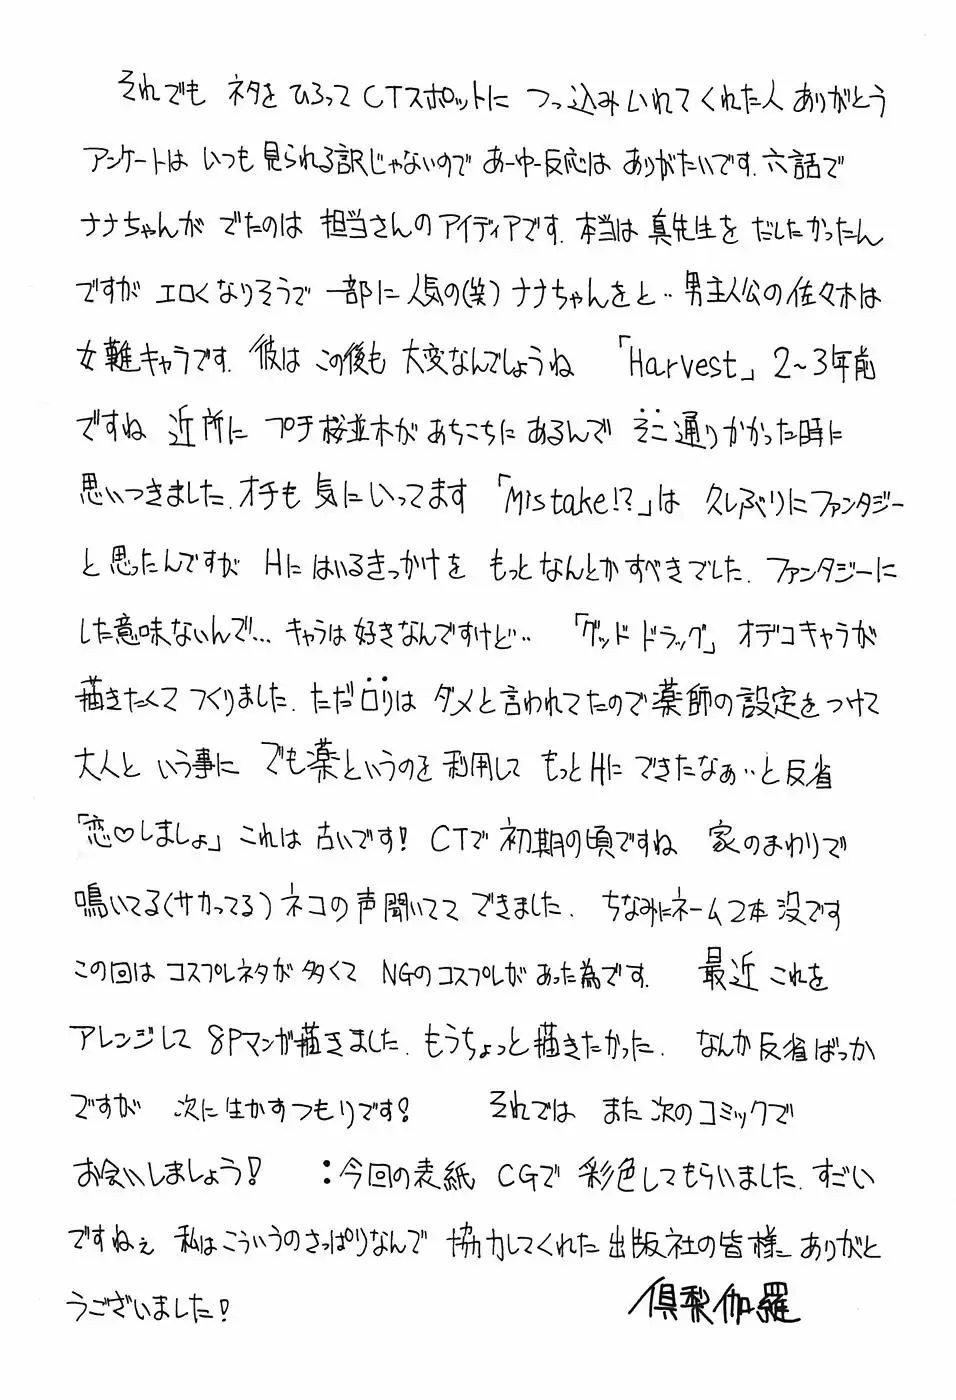 それでも ネタを ひろって CTスポットに つっ込みいれてくれた人 ありがとう
アンケートは いつも見られる訳じゃないので あーゆー反応は ありがたいです. 六話で
ナナちゃんが でたのは 担当さんのアイディアです. 本当は 真先生を だしたかったん
ですが エロくなりそうで 一部に 人気の(笑) ナナちゃんをと‥ 男主人公の佐々木は
女難キャラです. 彼は この後も 大変なんでしょうね 「Harvest」 2～3年前
ですね 近所に プチ桜並木が あちこちに あるんで そこ通りかかった時に
思いつきました. オチも 気にいってます 「Mistake!?」は 久しぶりにファンタジー
と思ったんですが Hにはいるきっかけを もっとなんとかすべきでした. ファンタジーに
した意味ないんで!… キャラは好きなんですけど‥ 「グッド ドラッグ」 オデコキャラが
描きたくて つくりました. ただロリは ダメと言われてたので薬師の設定をつけて
大人と いう事に でも薬というのを 利用して もっとHに できたなぁ‥と反省
「恋♡しましょ」 これは 古いです! CTで 初期の頃ですね 家のまわりで
鳴いてる(サカってる) ネコの声聞いてて できました. ちなみにネーム2本 没です
この回は コスプレネタが 多くて NGのコスプレが あった為です. 最近 これを
アレンジして 8Pマンガ描きました. もうちょっと描きたかった. なんか反省ばっか
ですが 次に 生かすつもりです! それでは また次のコミックで
お会いしましょう! :今回の表紙 CGで 彩色してもらいました. すごい
ですねぇ 私はこういうのさっぱりなんで 協力してくれた出版社の皆様 ありがと
うございました!
倶梨伽羅